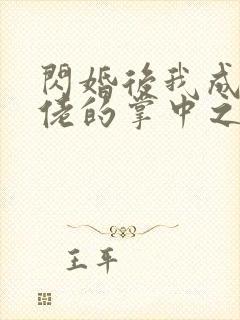 閃婚後我成
佬的掌中之
王平